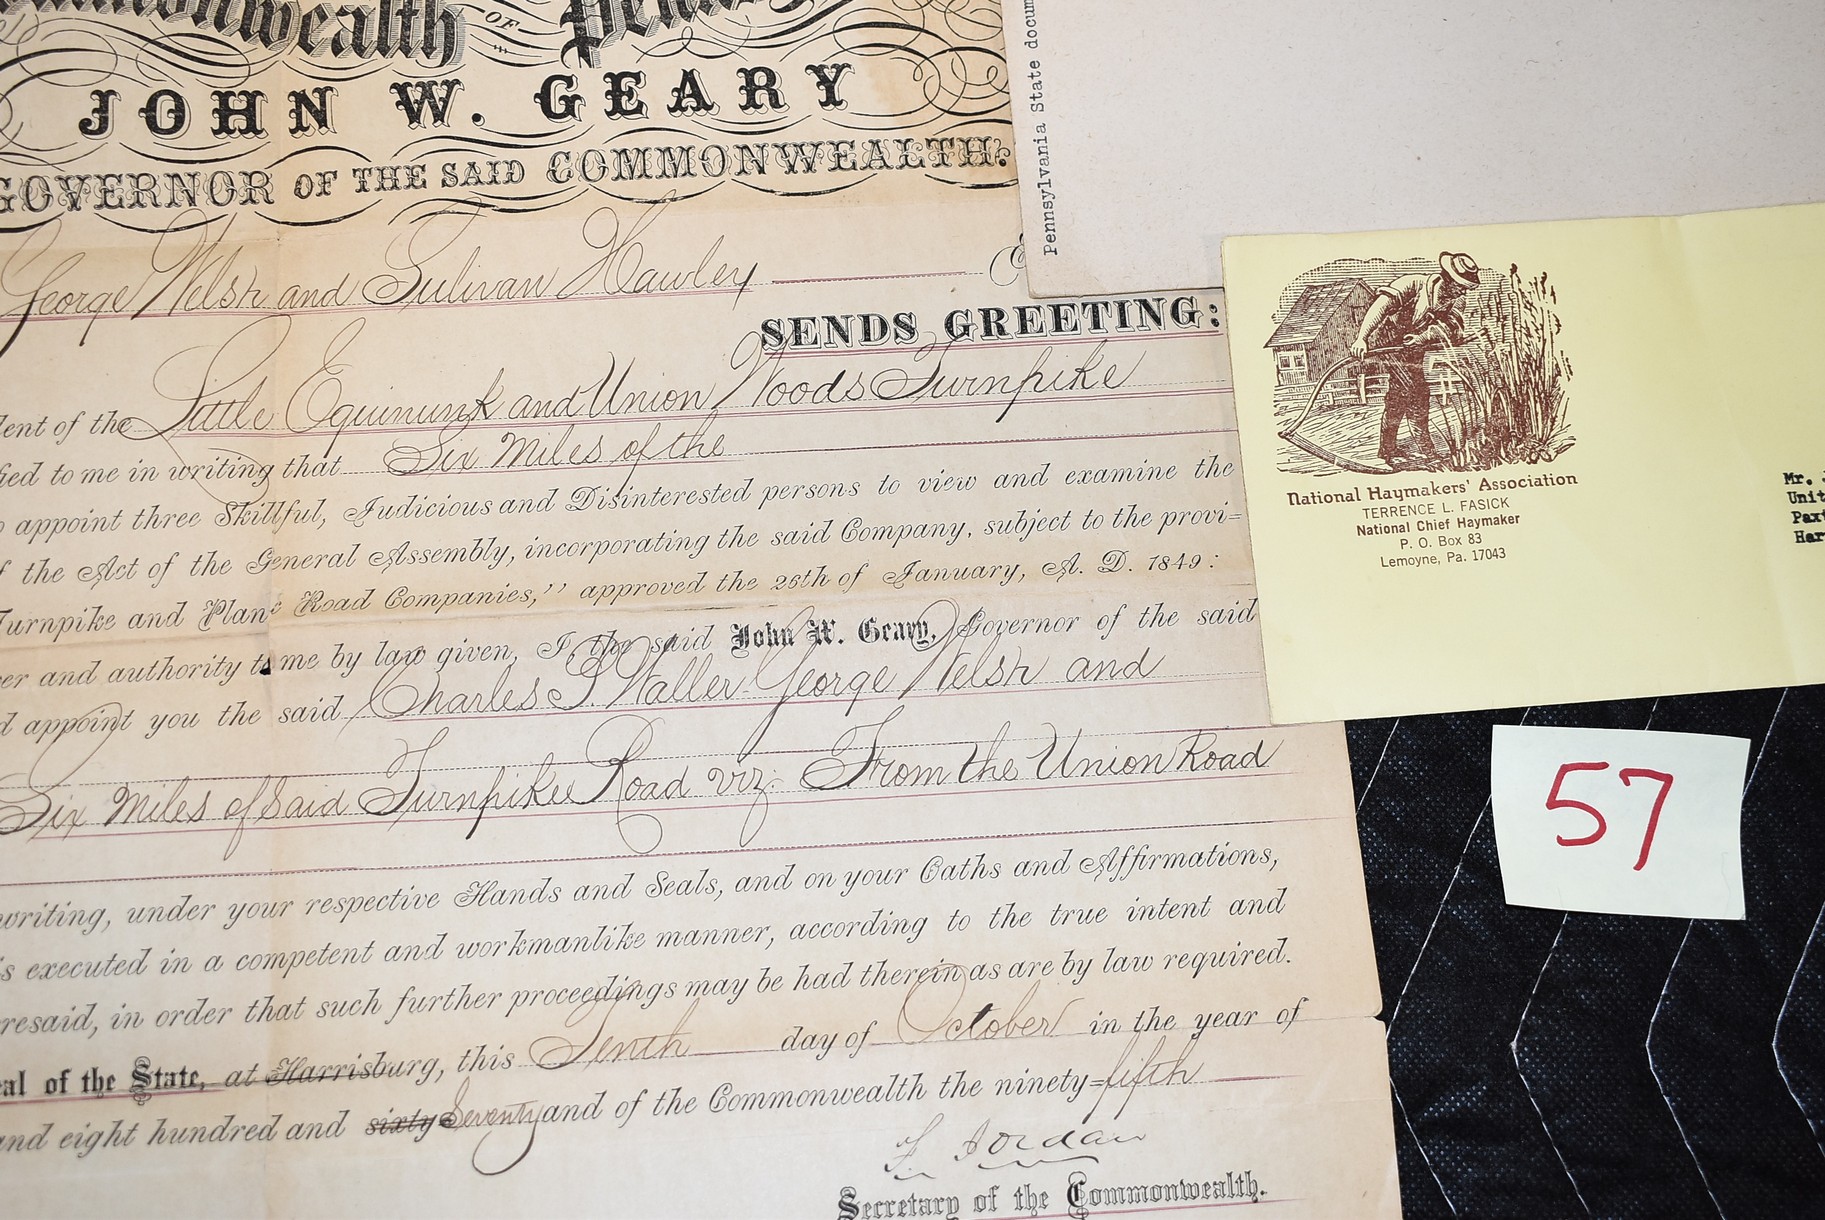 Commonwealth OF
JOHN W. GEARY
GOVERNOR OF THE SAID COMMONWEALTH.
George Welsh and Sulivan Hawley
SENDS GREETING:
dent of the Little Equinunk and Union Woods Turnpike
fied to me in writing that Six Miles of the
o appoint three Skillful, Judicious and Disinterested persons to view and examine the
f the Act of the General Assembly, incorporating the said Company, subject to the provi=
Turnpike and Plank Road Companies," approved the 26th of January, A. D. 1849:
er and authority to me by law given, I, the said John W. Geary, Governor of the said
d appoint you the said Charles P. Waller George Welsh and
Six Miles of Said Turnpike Road viz: From the Union Road
writing, under your respective Hands and Seals, and on your Oaths and Affirmations,
is executed in a competent and workmanlike manner, according to the true intent and
resaid, in order that such further proceedings may be had therein as are by law required.
eal of the State, at Harrisburg, this Tenth day of October in the year of
and eight hundred and sixty Seventy and of the Commonwealth the ninety=fifth
F. Jordan
Secretary of the Commonwealth.
Pennsylvania State docum
National Haymakers' Association
TERRENCE L. FASICK
National Chief Haymaker
P. O. Box 83
Lemoyne, Pa. 17043
Mr. J
Unit
Paxt
Har
57